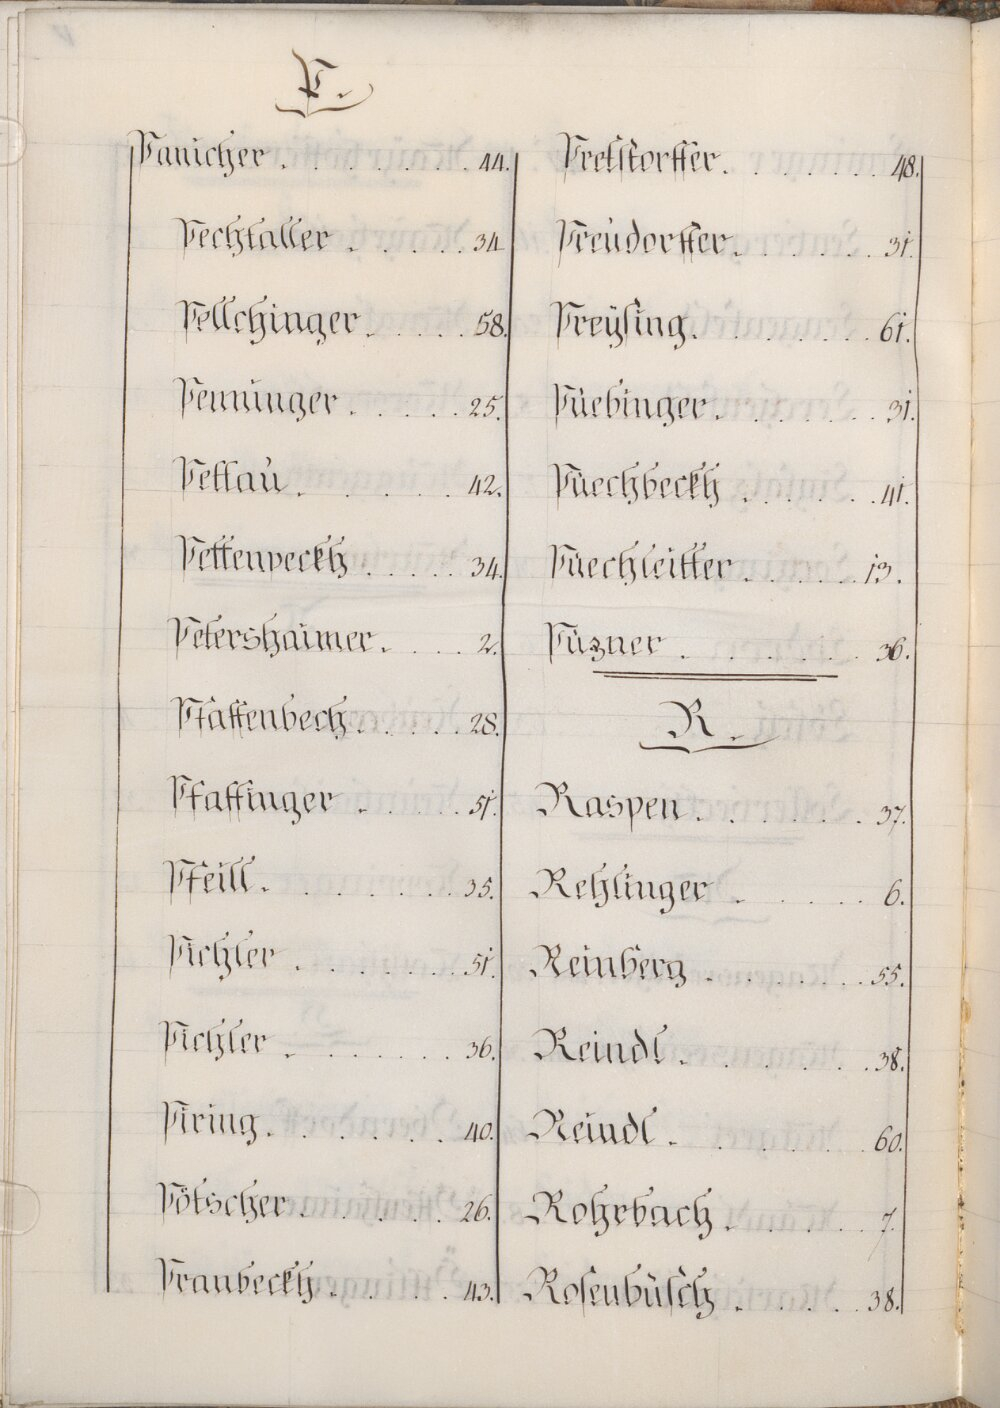 P.
Panicher . . . . . . . 44.
Pechtaller . . . . . 34
Pellchinger . . . . . 58.
Penninger . . . . . 25.
Pettau . . . . . . 42.
Pettenpeckh . . . . . 34.
Petershaimer . . . . 2.
Pfaffenbech . . . . . 28.
Pfaffinger . . . . . 51.
Pfeill . . . . . . . 35.
Pichler . . . . . . 51.
Pichler . . . . . . . 36.
Piring . . . . . . . 40.
Pötscher . . . . . . 26.
Pranbeckh . . . . . 43.
Pretstorffer . . . . . . 48.
Preüdorffer . . . . . . 31.
Preÿsing . . . . . . . 61.
Püebinger . . . . . . . 31.
Püechbeckh . . . . . . 41.
Püechleitter . . . . . . 13.
Püzner . . . . . . . 36.
R.
Raspen . . . . . . . 37.
Rehlinger . . . . . . 6.
Reinberg . . . . . . . 55.
Reindl . . . . . . . 38.
Reindl . . . . . . 60.
Rohrbach . . . . . . 7.
Rosenbüsch . . . . . 38.